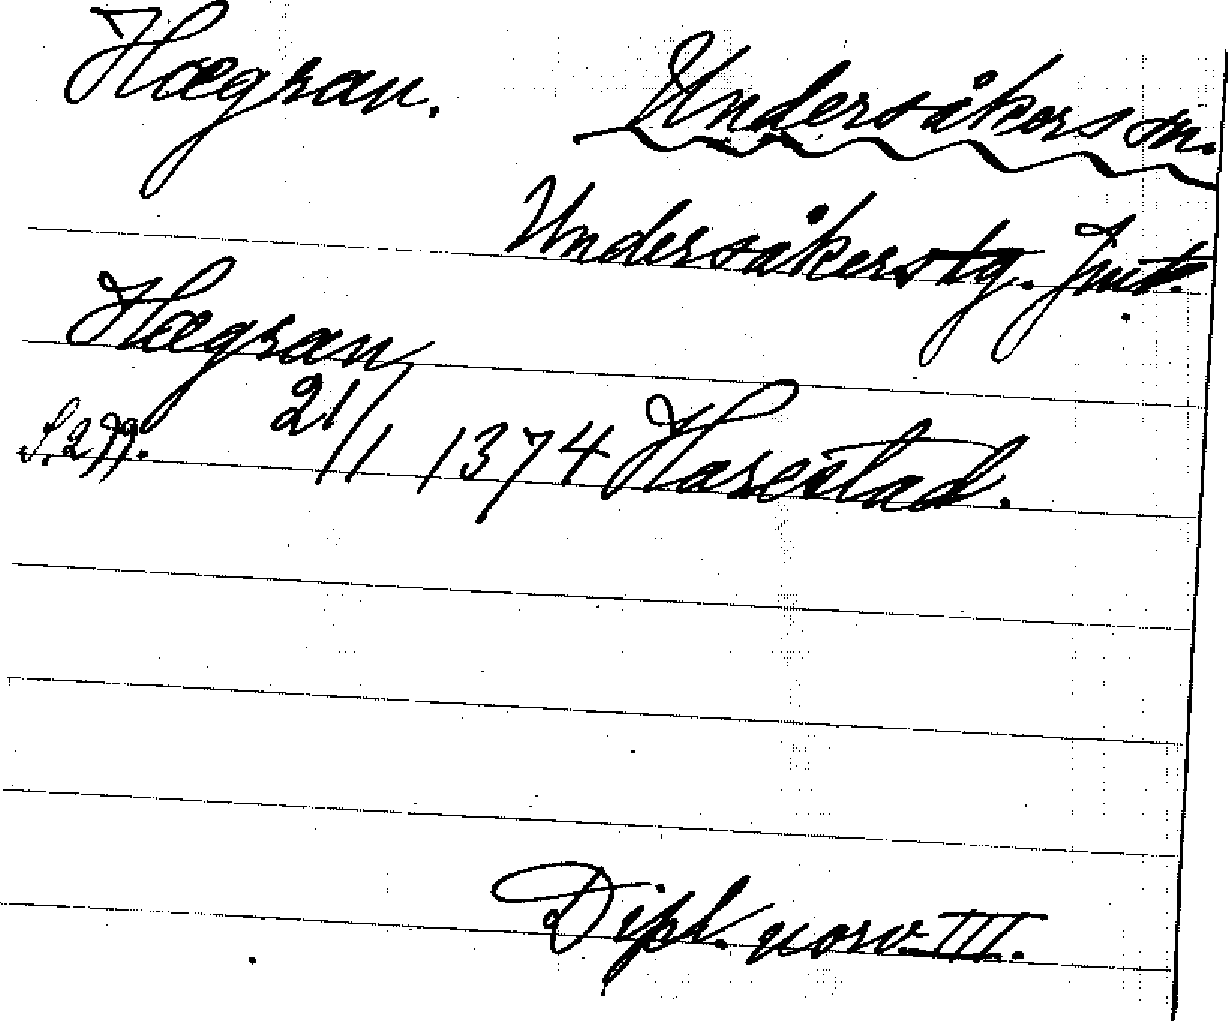 Hægran. Undersåkers sn.
Undersåkers tg. Jmt.
Hægran
S. 299. 21/1 1374 Harestad.
Dipl. norv. III.